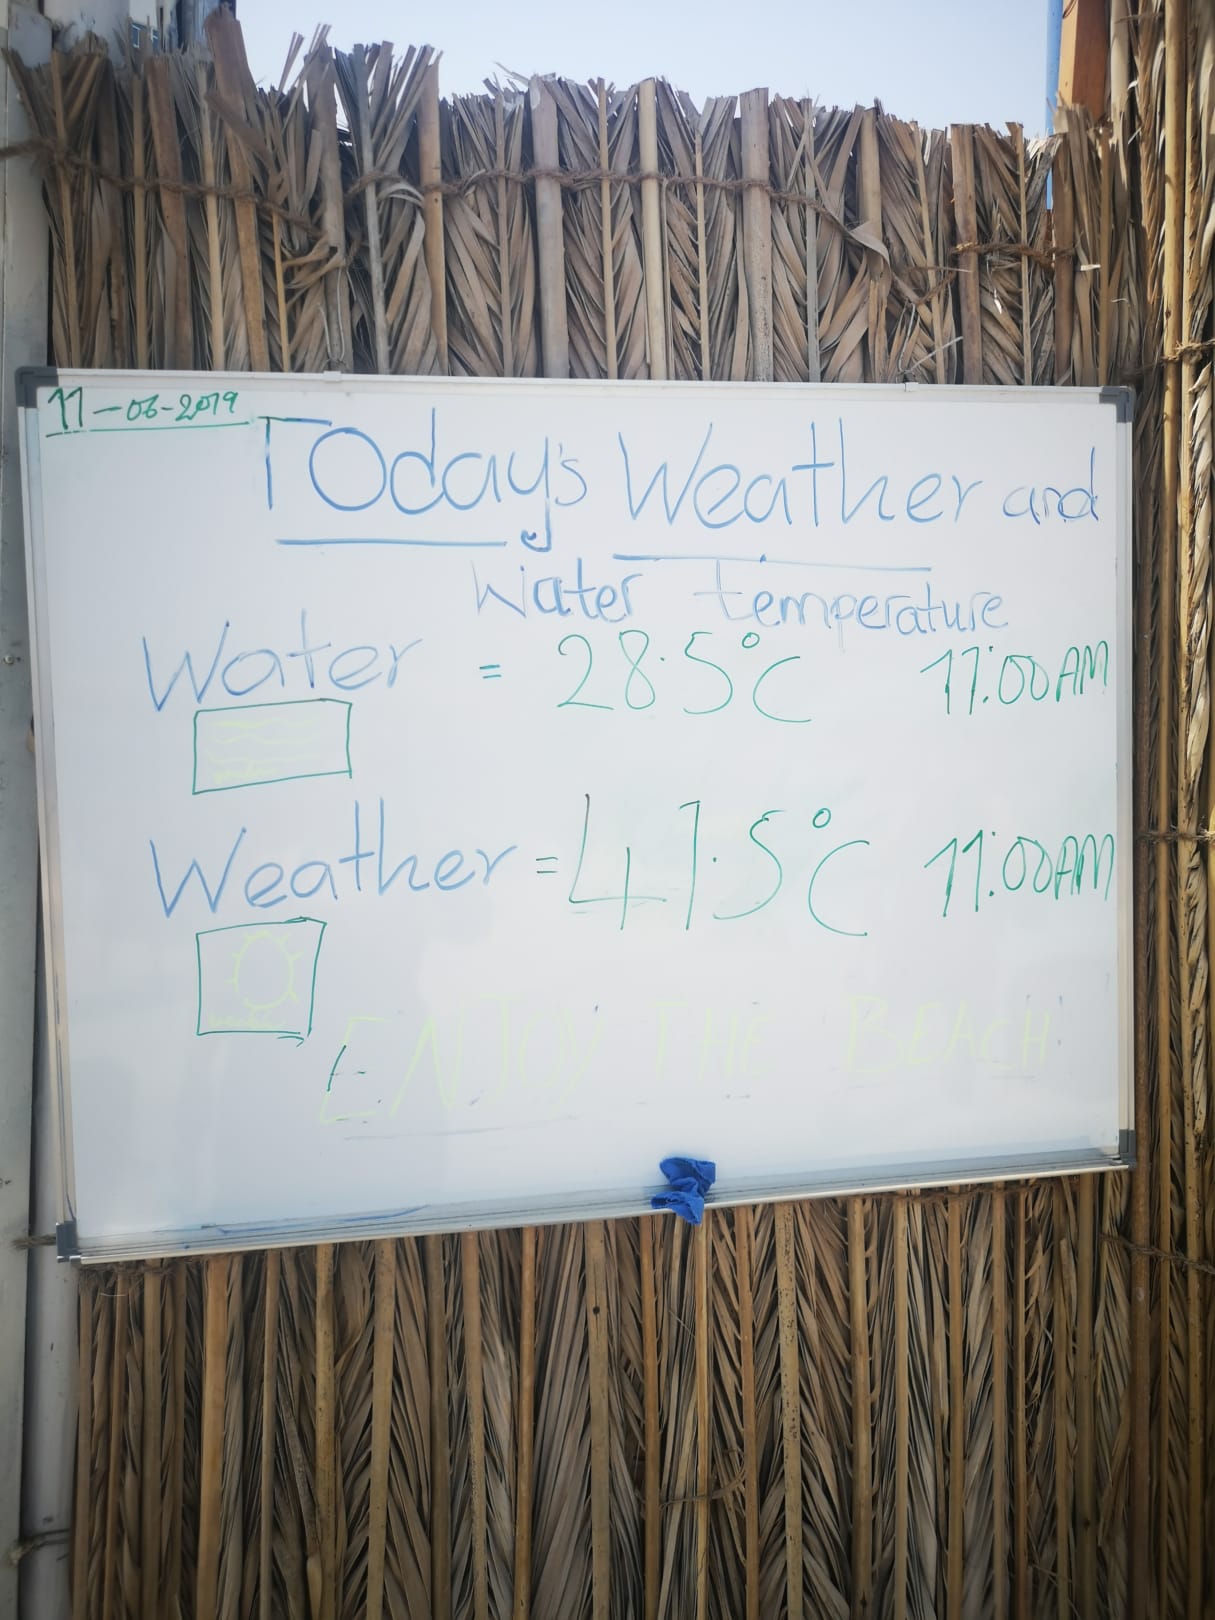 11-06-2019
TOday's Weather and
Water temperature
Water = 28.5°C 11:00AM
Weather = 41.5°C 11:00AM
ENJOY THE BEACH